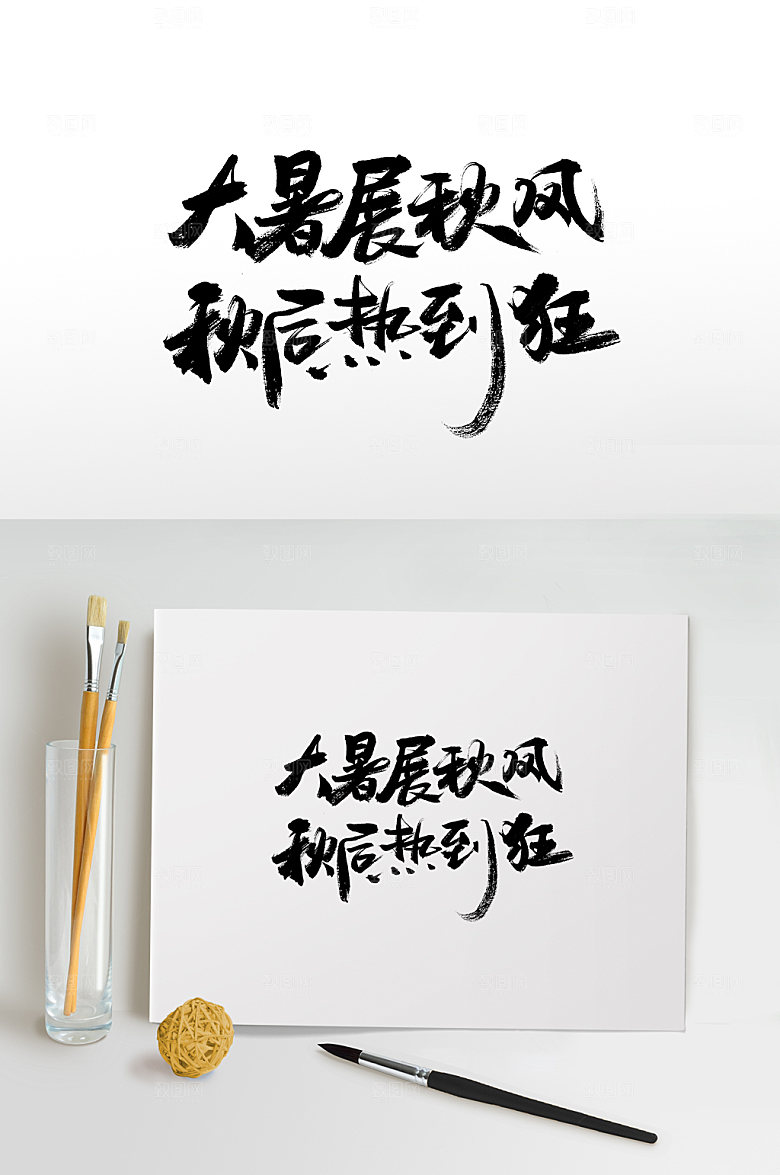 大暑展秋风
秋后热到狂
大暑展秋风
秋后热到狂